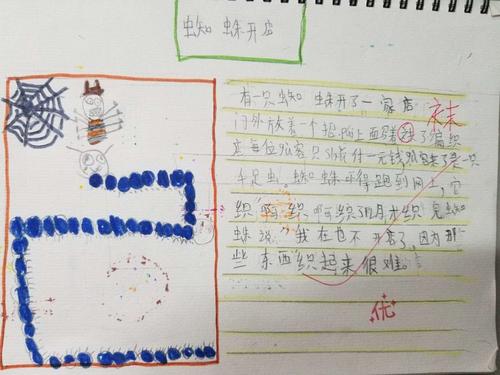 蜘蛛开店
有一只蜘蛛开了一家店
门外放着一个招牌上面写着 了编织
店每位顾客只 付一元钱顾客来了是一只
千足虫。蜘蛛 得跑到网上,它
织啊织啊织了 月才织完蜘
蛛说:“我在也不开店了,因为那
些东西织起来很难。”
袜
优